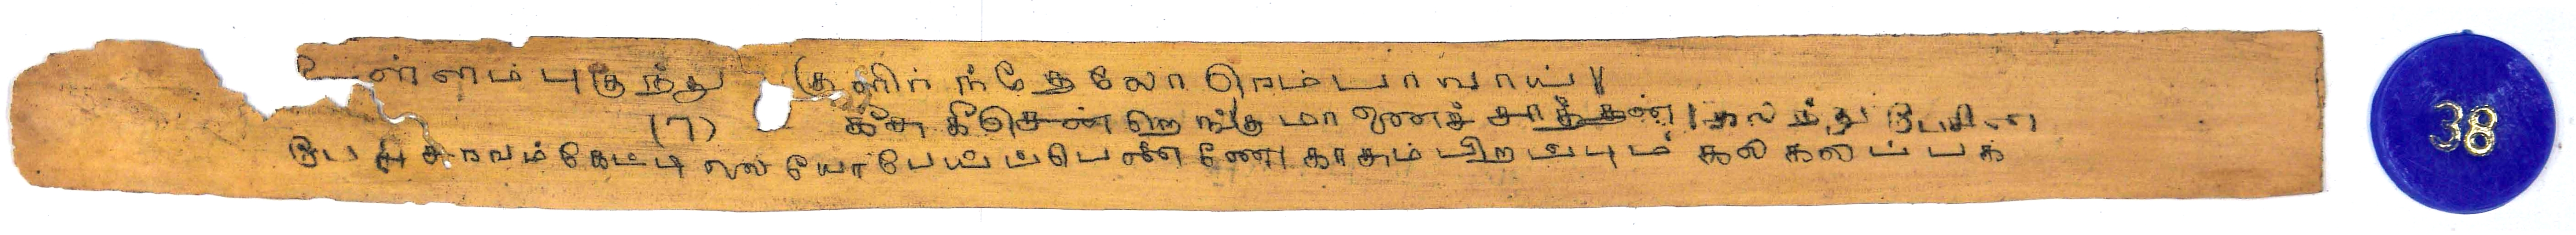 உள்ளம் புகுந்து குளிர்ந்தேலோ ரெம்பாவாய் ||
(7) கீசு கீசென் றெங்கு மானைச் சாத்தன் | கலந்து பேசின
பேச்சரவம் கேட்டிலையோ பேய்ப்பெண்ணே காசும் பிறப்பும் கலகலப்பக்
38